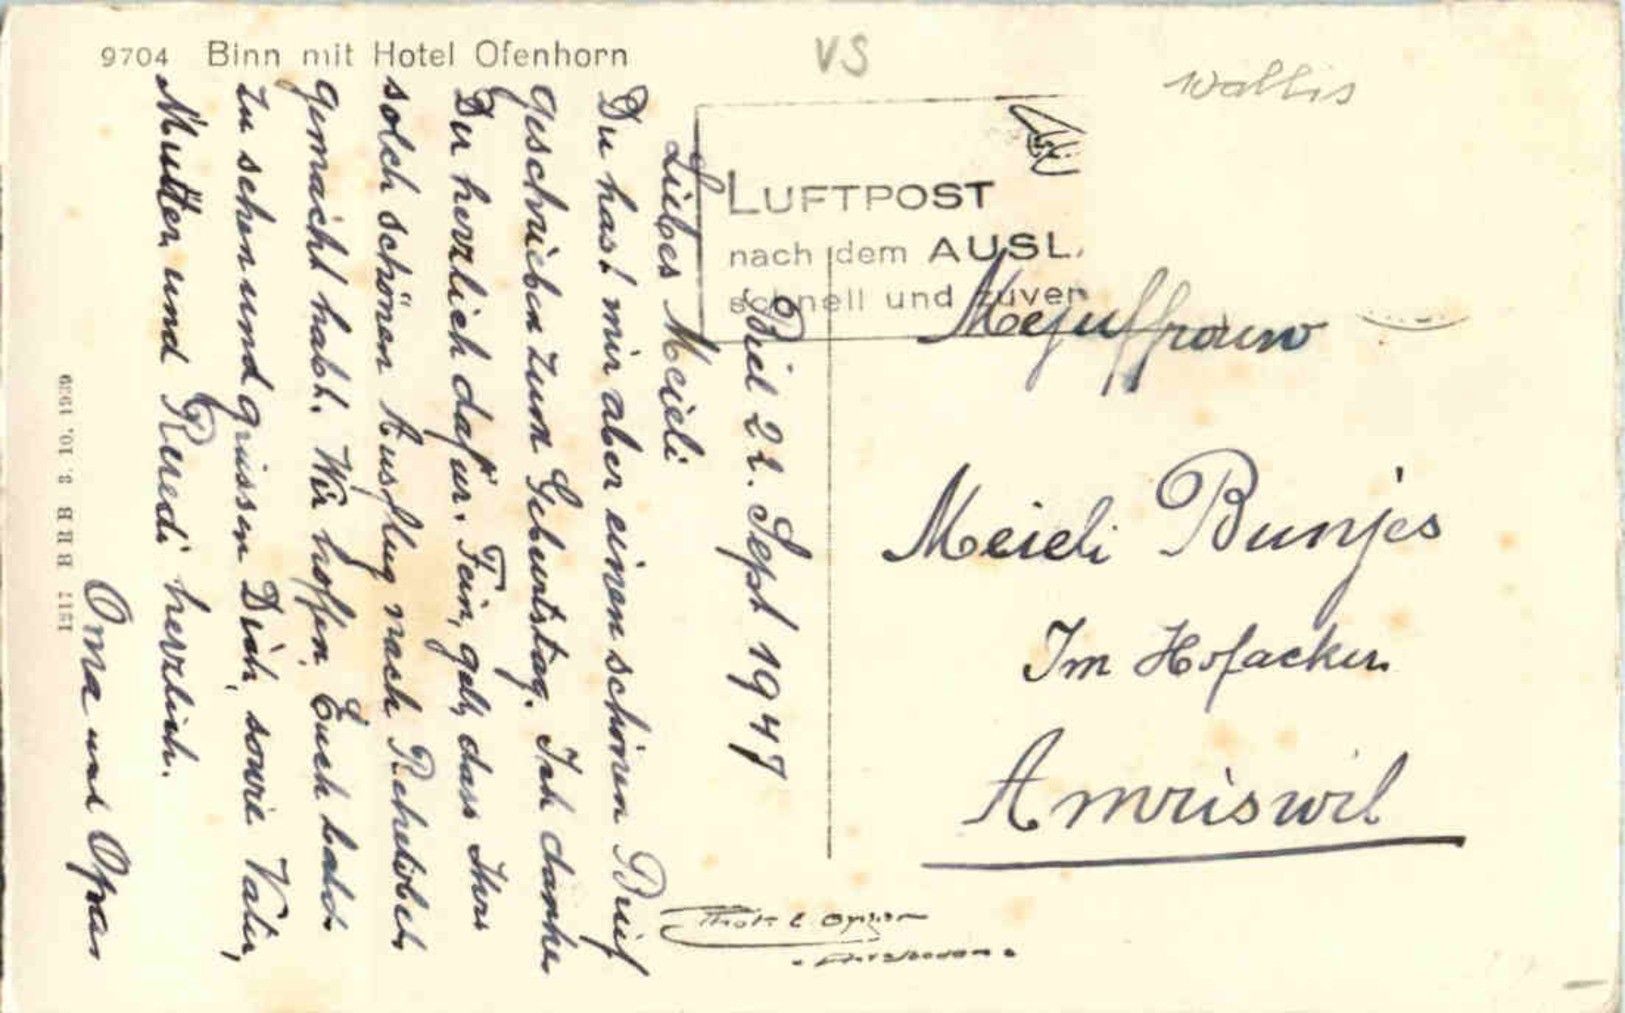 9704 Binn mit Hotel Ofenhorn
VS
Wallis
LUFTPOST
nach dem AUSL.
schnell und zuver
Biel 21. Sept 1947
Liebes Meieli
Du hast mir aber einen schönen Brief
geschrieben zum Geburtstag. Ich danke
Dir herzlich dafür. Fein, gelt, dass Ihr
solch schönen Ausflug nach Rehetobel
gemacht habt. Wir hoffen Euch bald
zu sehen und grüssen Dich, sowie Vati,
Mutter und Ruedi herzlich.
Oma und Opa
Mejuffrouw
Meieli Bunjes
Im Hofacker
Amriswil
1517 BRB 3. 10. 1939
Phot.